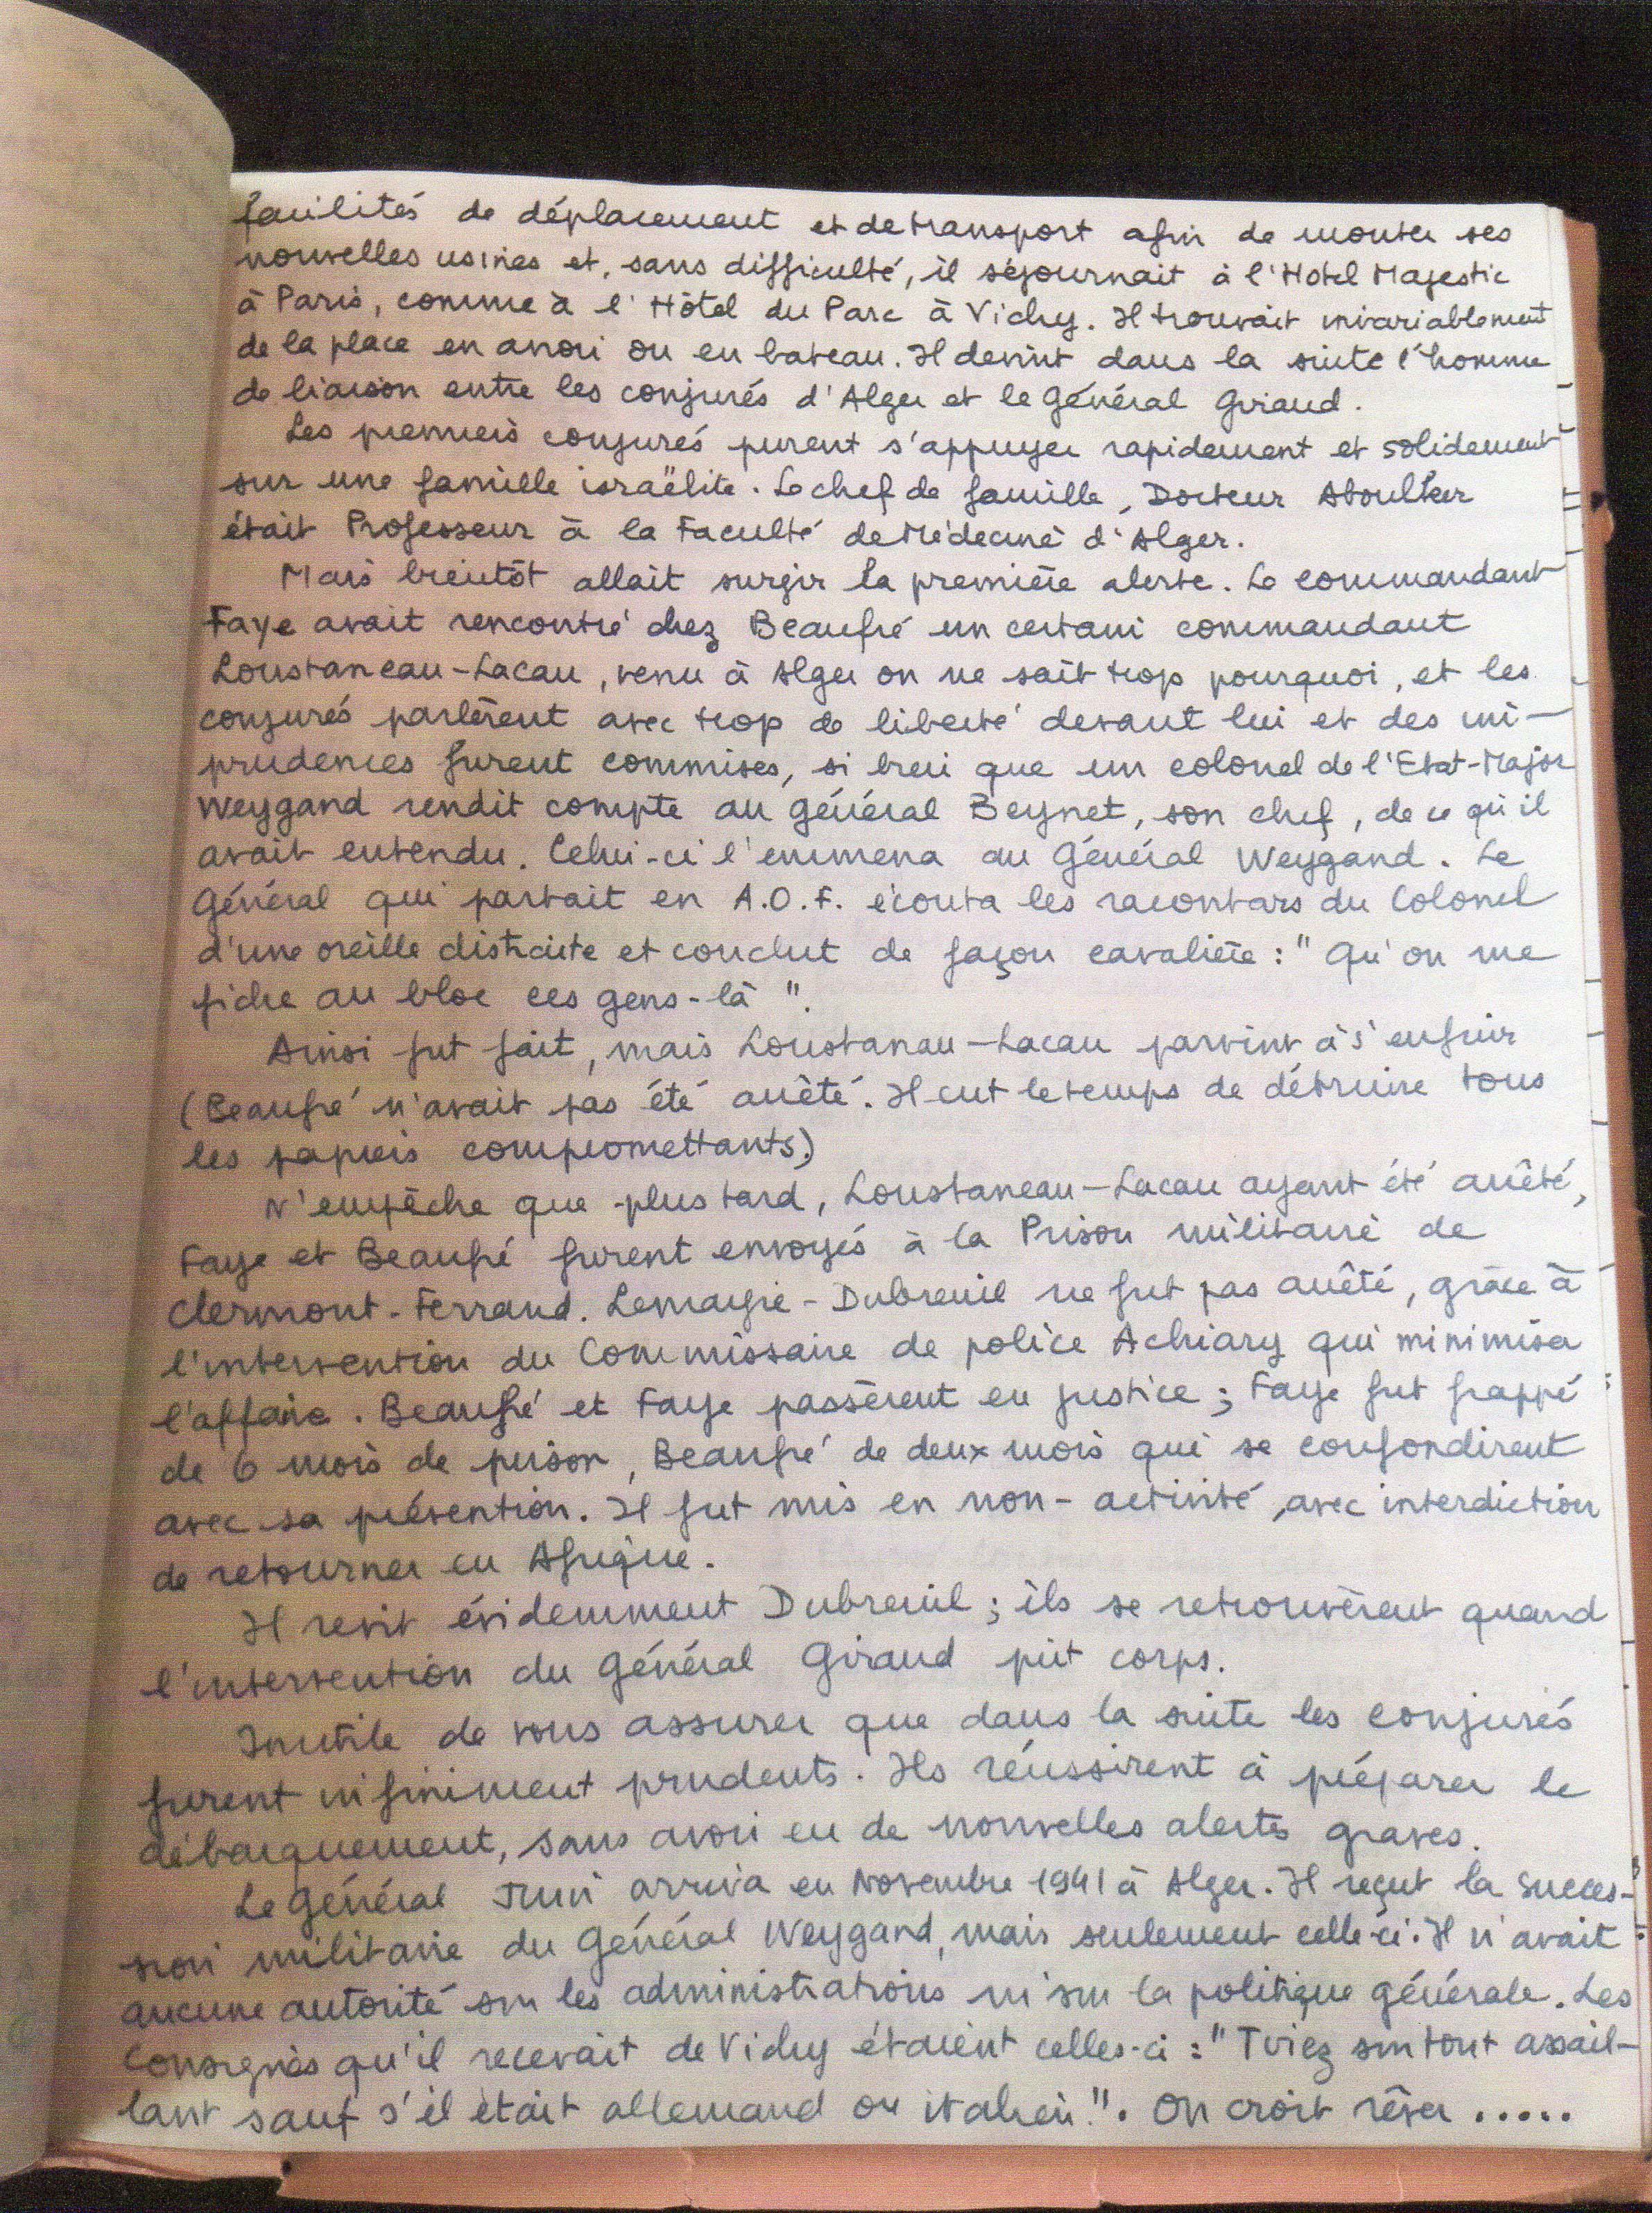 facilités de déplacement et de transport afin de monter ses
nouvelles usines et, sans difficulté, il séjournait à l'Hotel Majestic
à Paris, comme à l'Hôtel du Parc à Vichy. Il trouvait invariablement
de la place en avion ou en bateau. Il devint dans la suite l'homme
de liaison entre les conjurés d'Alger et le Général Giraud.
Les premiers conjurés purent s'appuyer rapidement et solidement
sur une famille israëlite. Le chef de famille, Docteur Aboulker
était Professeur à la Faculté de Médecine d'Alger.
Mais bientôt allait surgir la première alerte. Le commandant
Faye avait rencontré chez Beaufré un certain commandant
Loustaneau-Lacau, venu à Alger on ne sait trop pourquoi, et les
conjurés parlèrent avec trop de liberté devant lui et des im-
prudences furent commises, si bien que un colonel de l'Etat-Major
Weygand rendit compte au Général Beynet, son chef, de ce qu'il
avait entendu. Celui-ci l'emmena au Général Weygand. Le
Général qui partait en A.O.F. écouta les racontars du Colonel
d'une oreille distraite et conclut de façon cavalière : " Qu'on me
fiche au bloc ces gens-là ".
Ainsi fut fait, mais Loustanau-Lacau parvint à s'enfuir
(Beaufré n'avait pas été arrêté. Il eut le temps de détruire tous
les papiers compromettants.)
N'empêche que plus tard, Loustaneau-Lacau ayant été arrêté,
Faye et Beaufré furent envoyés à la Prison militaire de
Clermont-Ferrand. Lemaigre-Dubreuil ne fut pas arrêté, grâce à
l'intervention du Commissaire de police Achiary qui minimisa
l'affaire. Beaufré et Faye passèrent en justice ; Faye fut frappé
de 6 mois de prison, Beaufré de deux mois qui se confondirent
avec sa prévention. Il fut mis en non-activité, avec interdiction
de retourner en Afrique.
Il revit évidemment Dubreuil ; ils se retrouvèrent quand
l'intervention du Général Giraud prit corps.
Inutile de vous assurer que dans la suite les conjurés
furent infiniment prudents. Ils réussirent à préparer le
débarquement, sans avoir eu de nouvelles alertes graves.
Le Général Juin arriva en Novembre 1941 à Alger. Il reçut la succes-
sion militaire du Général Weygand, mais seulement celle-ci. Il n'avait
aucune autorité sur les administrations ni sur la politique générale. Les
consignes qu'il recevait de Vichy étaient celles-ci : " Tirez sur tout assail-
lant sauf s'il était allemand ou italien ". On croit rêver .....